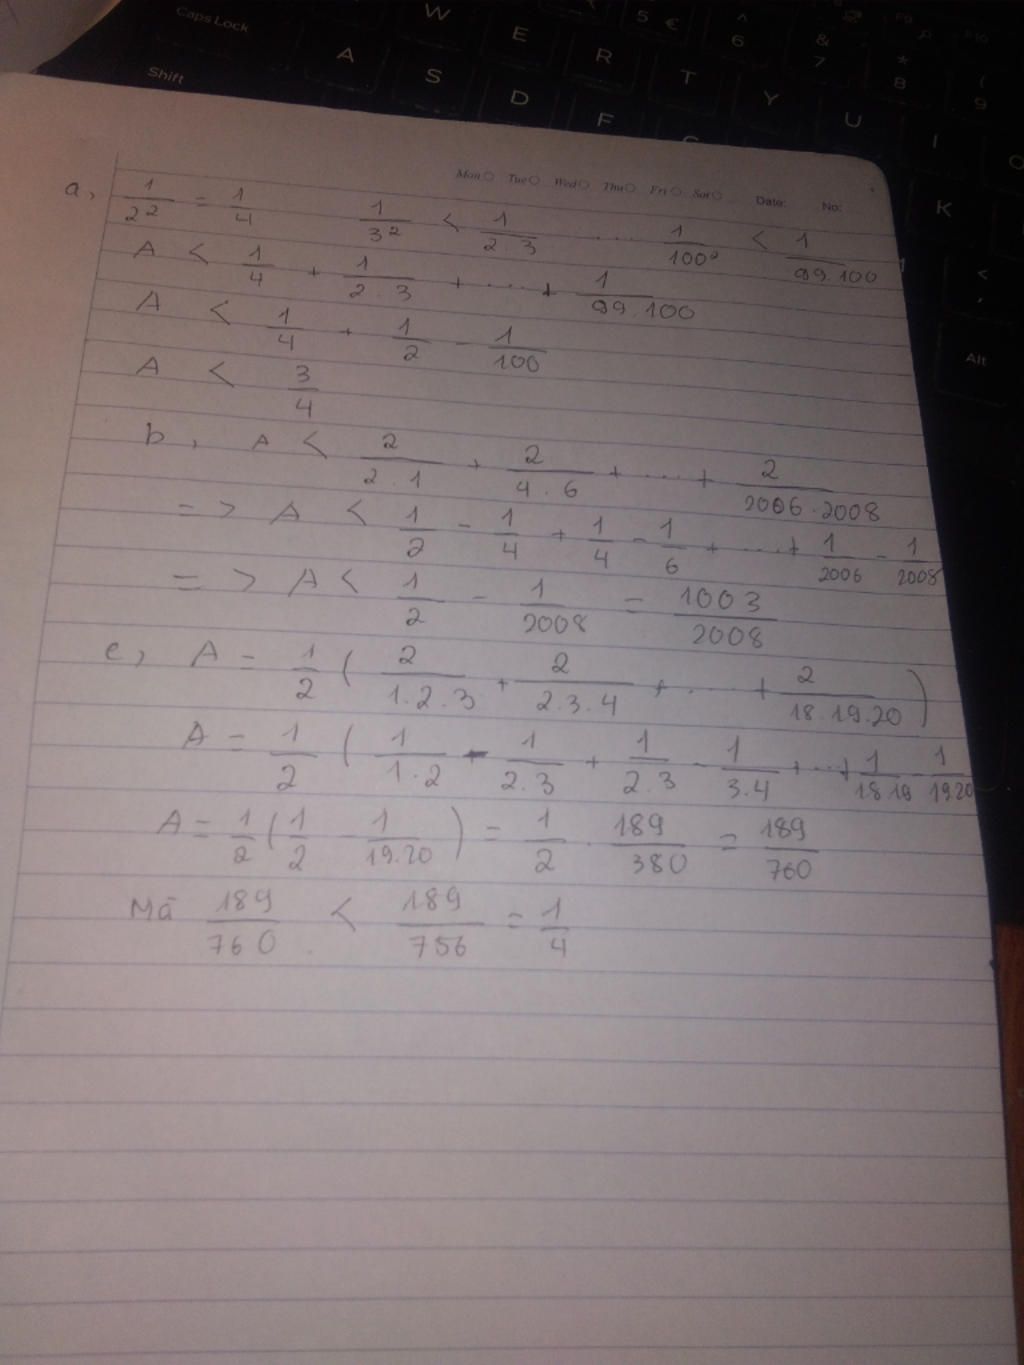 Caps Lock W E R 5 € ^ 6 & 7 * 8 ( 9
Shift A S D F T Y U I K < , Alt
Mon Tue Wed Thu Fri Sat Date: No:
a, 1/2² = 1/4 1/3² < 1/2.3 ... 1/100² < 1/99.100
A < 1/4 + 1/2.3 + ... + 1/99.100
A < 1/4 + 1/2 - 1/100
A < 3/4
b, A < 2/2.1 + 2/4.6 + ... + 2/2006.2008
=> A < 1/2 - 1/4 + 1/4 - 1/6 + ... + 1/2006 - 1/2008
=> A < 1/2 - 1/2008 = 1003/2008
c, A = 1/2 ( 2/1.2.3 + 2/2.3.4 + ... + 2/18.19.20 )
A = 1/2 ( 1/1.2 - 1/2.3 + 1/2.3 - 1/3.4 + ... + 1/18.19 - 1/19.20
A = 1/2 ( 1/2 - 1/19.20 ) = 1/2 . 189/380 = 189/760
Mà 189/760 < 189/756 = 1/4